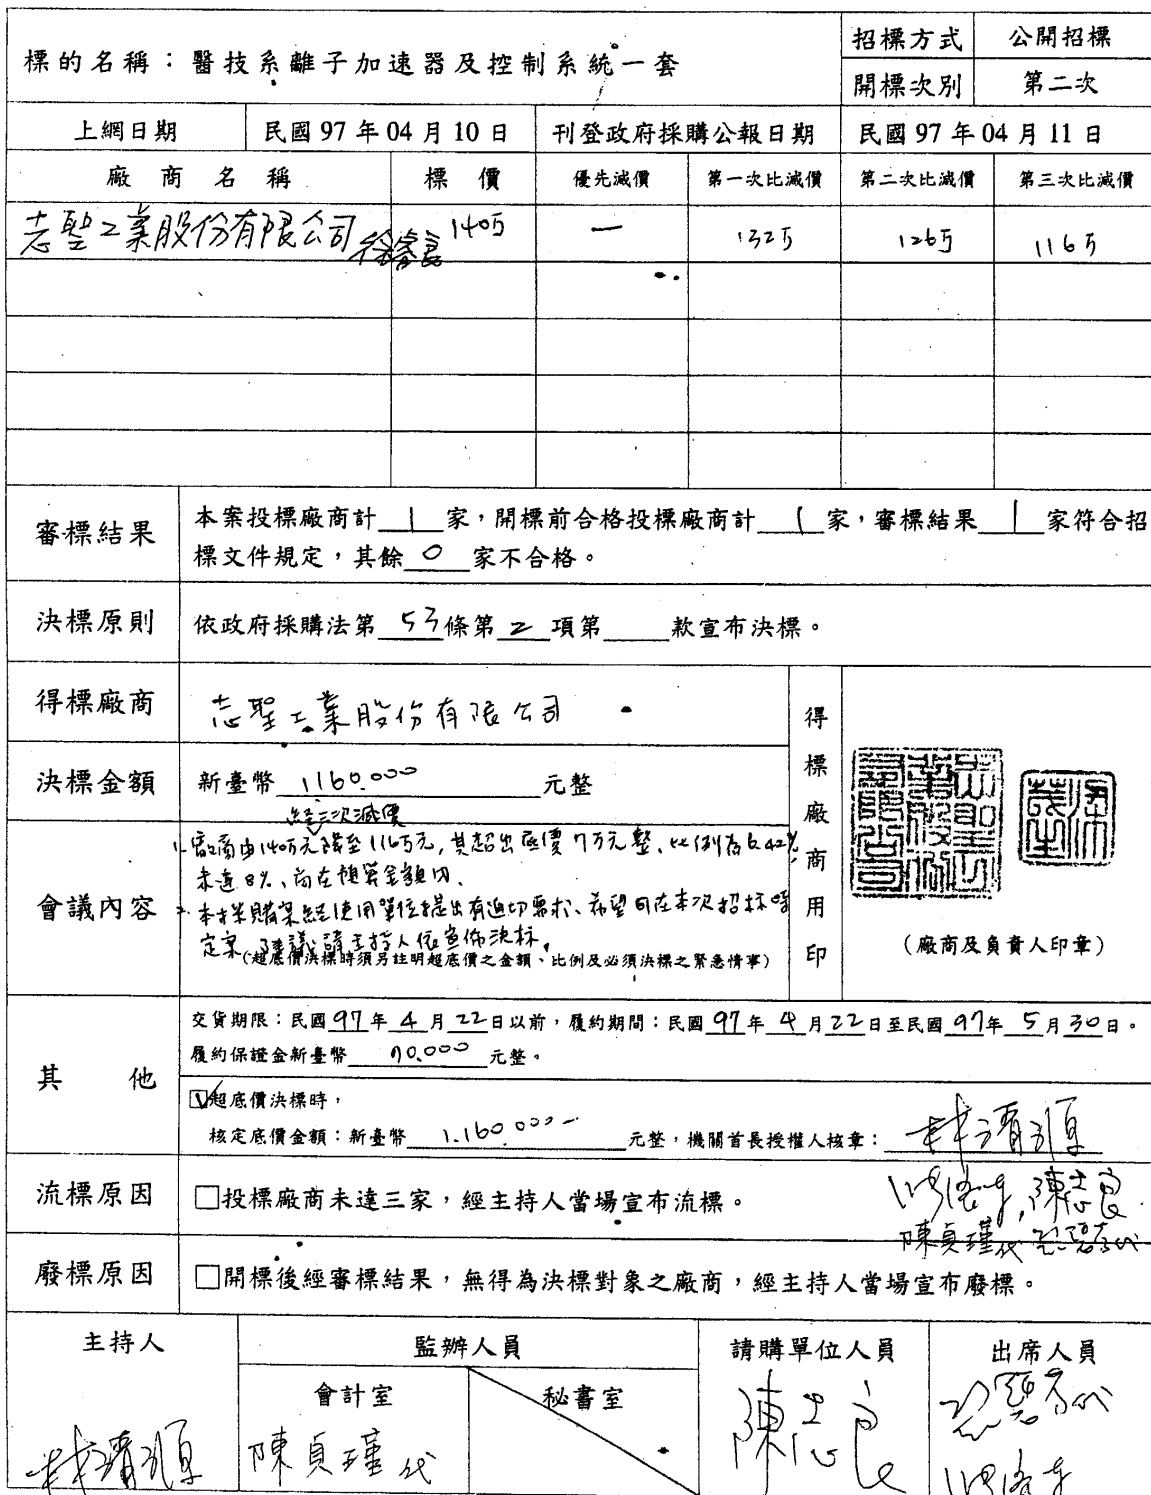 標的名稱：醫技系離子加速器及控制系統一套
招標方式 公開招標
開標次別 第二次
上網日期 民國 97 年 04 月 10 日 刊登政府採購公報日期 民國 97 年 04 月 11 日
廠商名稱 標價 優先減價 第一次比減價 第二次比減價 第三次比減價
志聖工業股份有限公司 140万 — 132万 126万 116万
審標結果 本案投標廠商計 1 家，開標前合格投標廠商計 1 家，審標結果 1 家符合招
標文件規定，其餘 0 家不合格。
決標原則 依政府採購法第 53 條第 2 項第 款宣布決標。
得標廠商 志聖工業股份有限公司
決標金額 新臺幣 1160.000 元整
得標廠商用印
(廠商及負責人印章)
會議內容
經三次減價
1. 廠商由140万元降至116万元，其超出底價7万元整、比例為6.42%
未達8%、尚在預算金額內、
2. 本採購案經使用單位提出有迫切需求、希望可在本次招标時
定案、建議請主持人依宣佈決标。
(超底價決標時須另註明超底價之金額、比例及必須決標之緊急情事)
其他
交貨期限：民國 97 年 4 月 22 日以前，履約期間：民國 97 年 4 月 22 日至民國 97 年 5 月 30 日。
履約保證金新臺幣 70.000 元整。
☑超底價決標時，
核定底價金額：新臺幣 1.160.000- 元整，機關首長授權人核章：
陳志良
陳貞瑾代
流標原因 □投標廠商未達三家，經主持人當場宣布流標。
廢標原因 □開標後經審標結果，無得為決標對象之廠商，經主持人當場宣布廢標。
主持人 監辦人員 請購單位人員 出席人員
會計室 秘書室
陳貞瑾代 陳志良